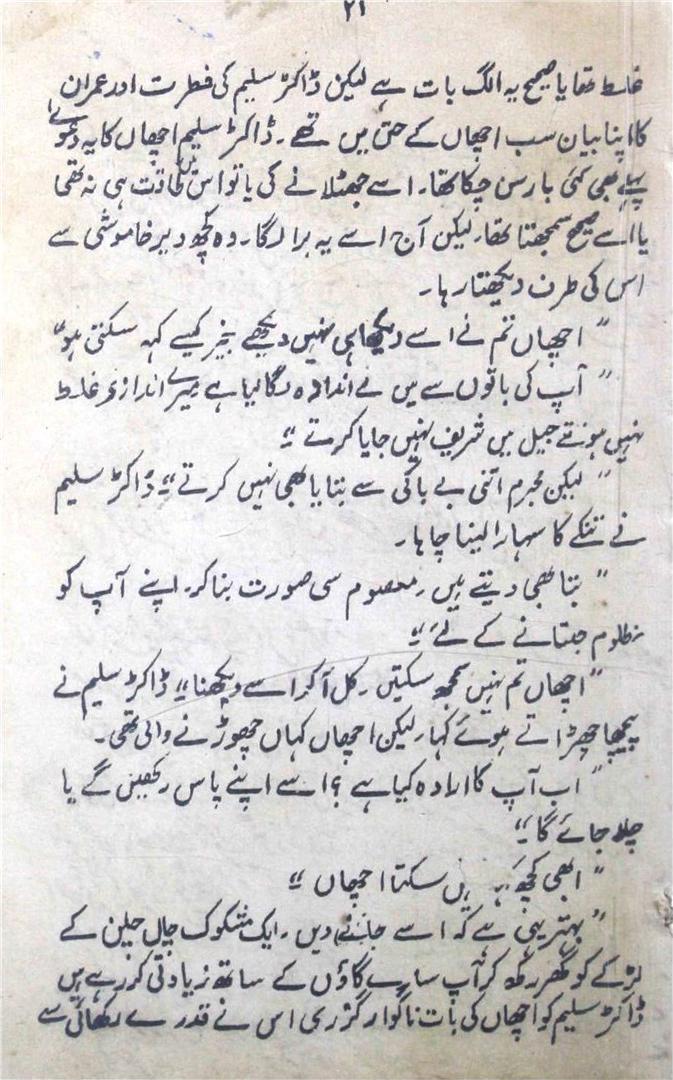 ۲۱
غلط تھا یا صحیح یہ الگ بات ہے لیکن ڈاکٹر سلیم کی فطرت اور عمران
کا اپنا بیان سب اچھاں کے حق میں تھے۔ ڈاکٹر سلیم اچھاں کا یہ دعویٰ
پہلے بھی کئی بار سن چکا تھا۔ اسے جھٹلانے کی یا تو اس میں طاقت ہی نہ تھی
یا اسے صحیح سمجھتا تھا۔ لیکن آج اسے یہ برا لگا۔ وہ کچھ دیر خاموشی سے
اس کی طرف دیکھتا رہا۔
” اچھاں تم نے اسے دیکھا ہی نہیں دیکھے بغیر کیسے کہہ سکتی ہو “
” آپ کی باتوں سے میں نے اندازہ لگا لیا ہے میرے اندازے غلط
نہیں ہوتے جیل میں شریف نہیں جایا کرتے “
” لیکن مجرم اتنی بے باکی سے بتایا بھی نہیں کرتے “ ڈاکٹر سلیم
نے تنکے کا سہارا لینا چاہا۔
” بتا بھی دیتے ہیں۔ معصوم سی صورت بنا کر۔ اپنے آپ کو
مظلوم جتانے کے لئے “
” اچھاں تم نہیں سمجھ سکتیں۔ کل آکر اسے دیکھنا “ ڈاکٹر سلیم نے
پیچھا چھڑاتے ہوئے کہا۔ لیکن اچھاں کہاں چھوڑنے والی تھی۔
” اب آپ کا ارادہ کیا ہے ؟ اسے اپنے پاس رکھیں گے یا
چلا جائے گا “
” ابھی کچھ سکتا اچھاں “
” بہتر یہی ہے کہ اسے جانے دیں۔ ایک مشکوک چال چلن کے
لڑکے کو گھر رکھ کر آپ سارے گاؤں کے ساتھ زیادتی کر رہے ہیں
ڈاکٹر سلیم کو اچھاں کی بات ناگوار گزری اس نے قدرے رکھائی سے